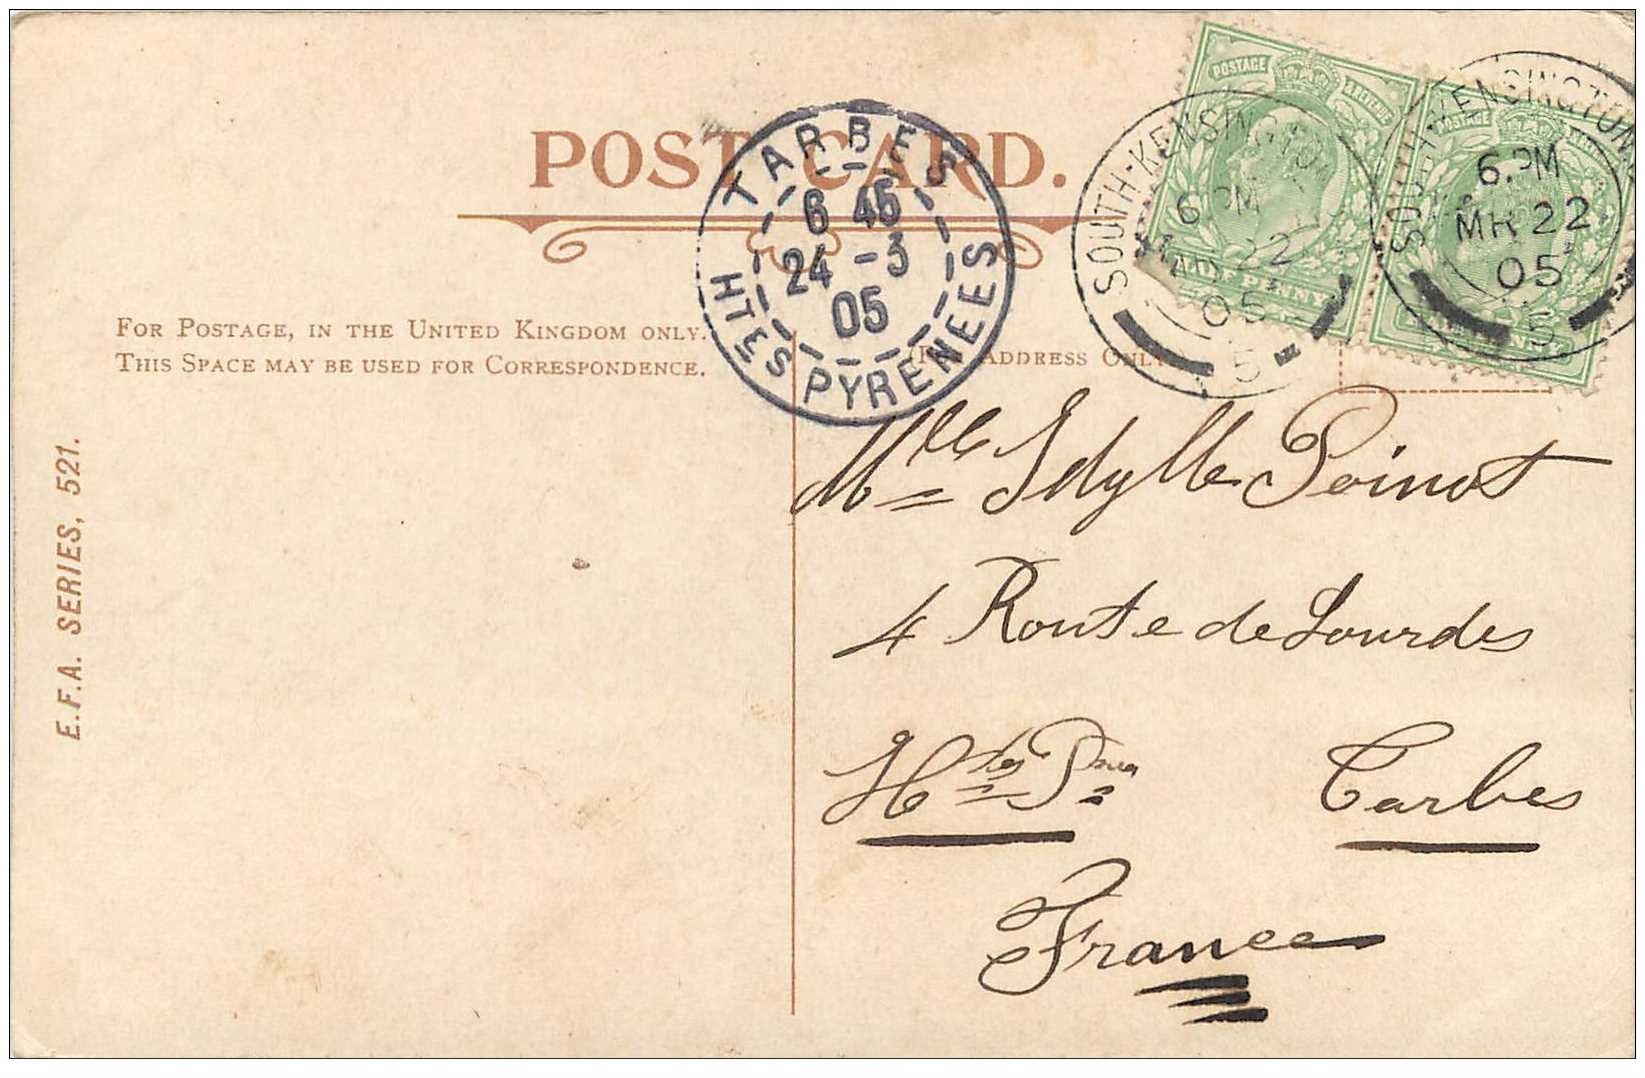 POST CARD.
TARBES
6 45
24 - 3
05
HTES PYRENEES
POSTAGE
SOUTH-KENSINGTON
6.PM
22
05
5
POSTAGE
SOUTH-KENSINGTON
6.PM
MR 22
05
5
FOR POSTAGE, IN THE UNITED KINGDOM ONLY.
THIS SPACE MAY BE USED FOR CORRESPONDENCE.
ADDRESS ONLY
E.F.A. SERIES, 521.
Mlle Idylle Poinot
4 Route de Lourdes
Htes Pnées Tarbes
France